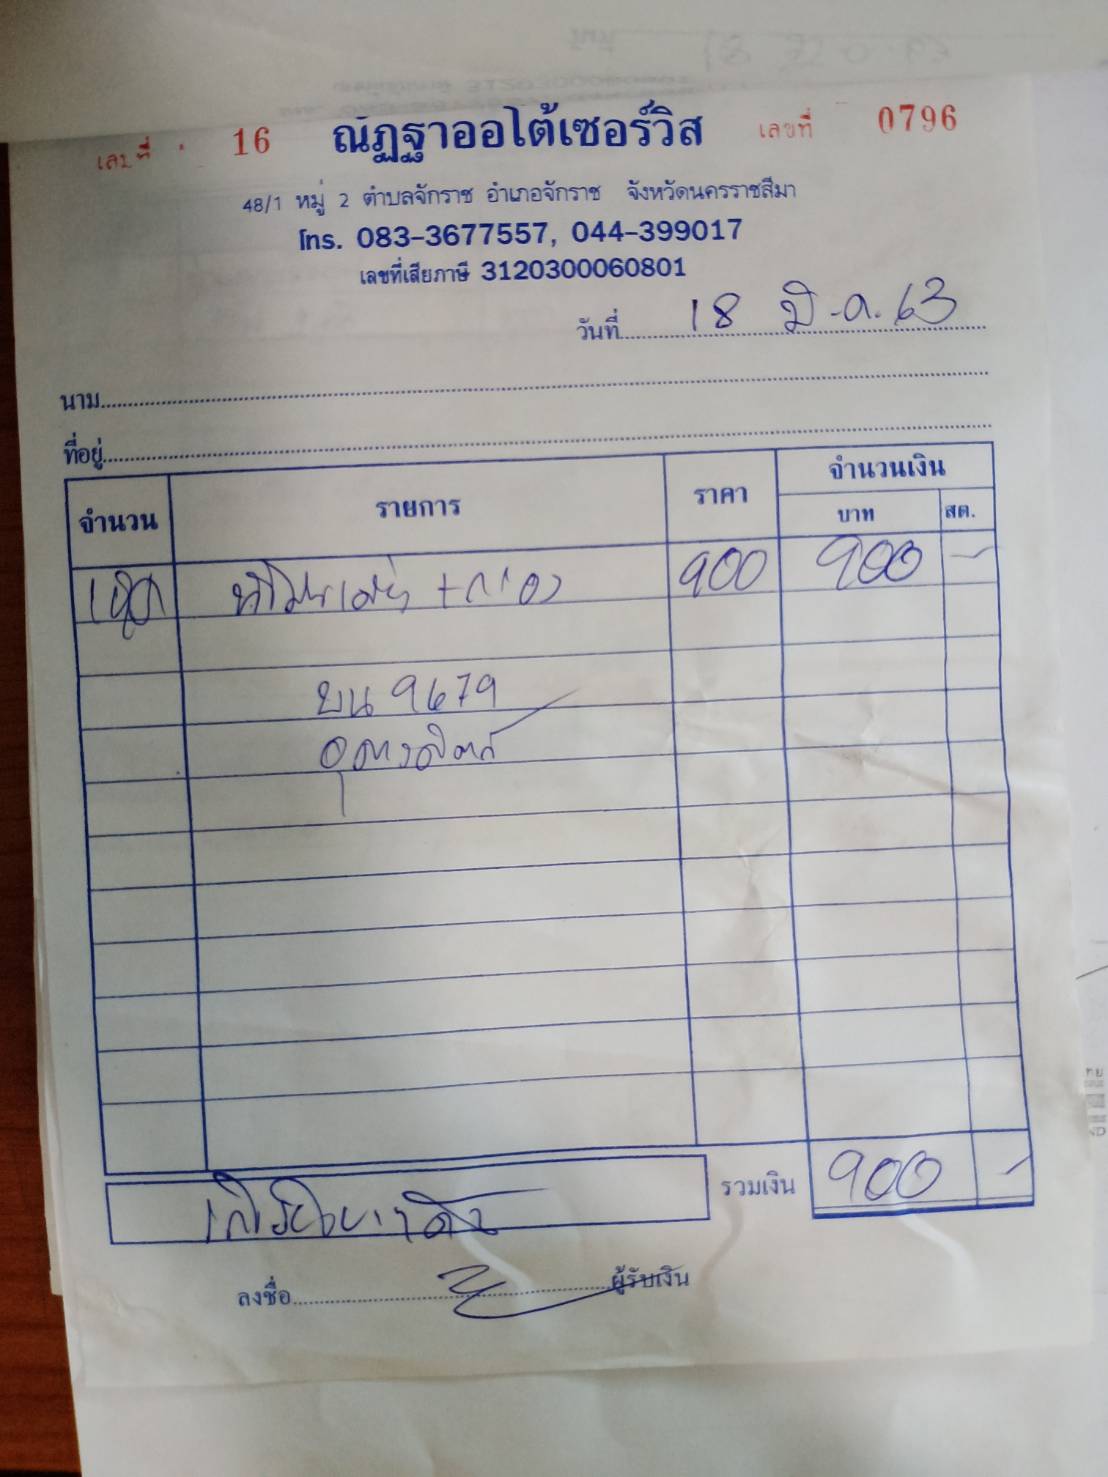 เล่มที่ 16 ณัฏฐาออโต้เซอร์วิส เลขที่ 0796
48/1 หมู่ 2 ตำบลจักราช อำเภอจักราช จังหวัดนครราชสีมา
โทร. 083-3677557, 044-399017
เลขที่เสียภาษี 3120300060801
วันที่ 18 มี.ค. 63
นาม
ที่อยู่
จำนวน รายการ ราคา จำนวนเงิน
บาท สต.
1 ชุด น้ำมันเครื่อง + กรอง 900 900 -
บน 9679
อุตรดิตถ์
เก้าร้อยบาทถ้วน รวมเงิน 900 -
ลงชื่อ ผู้รับเงิน